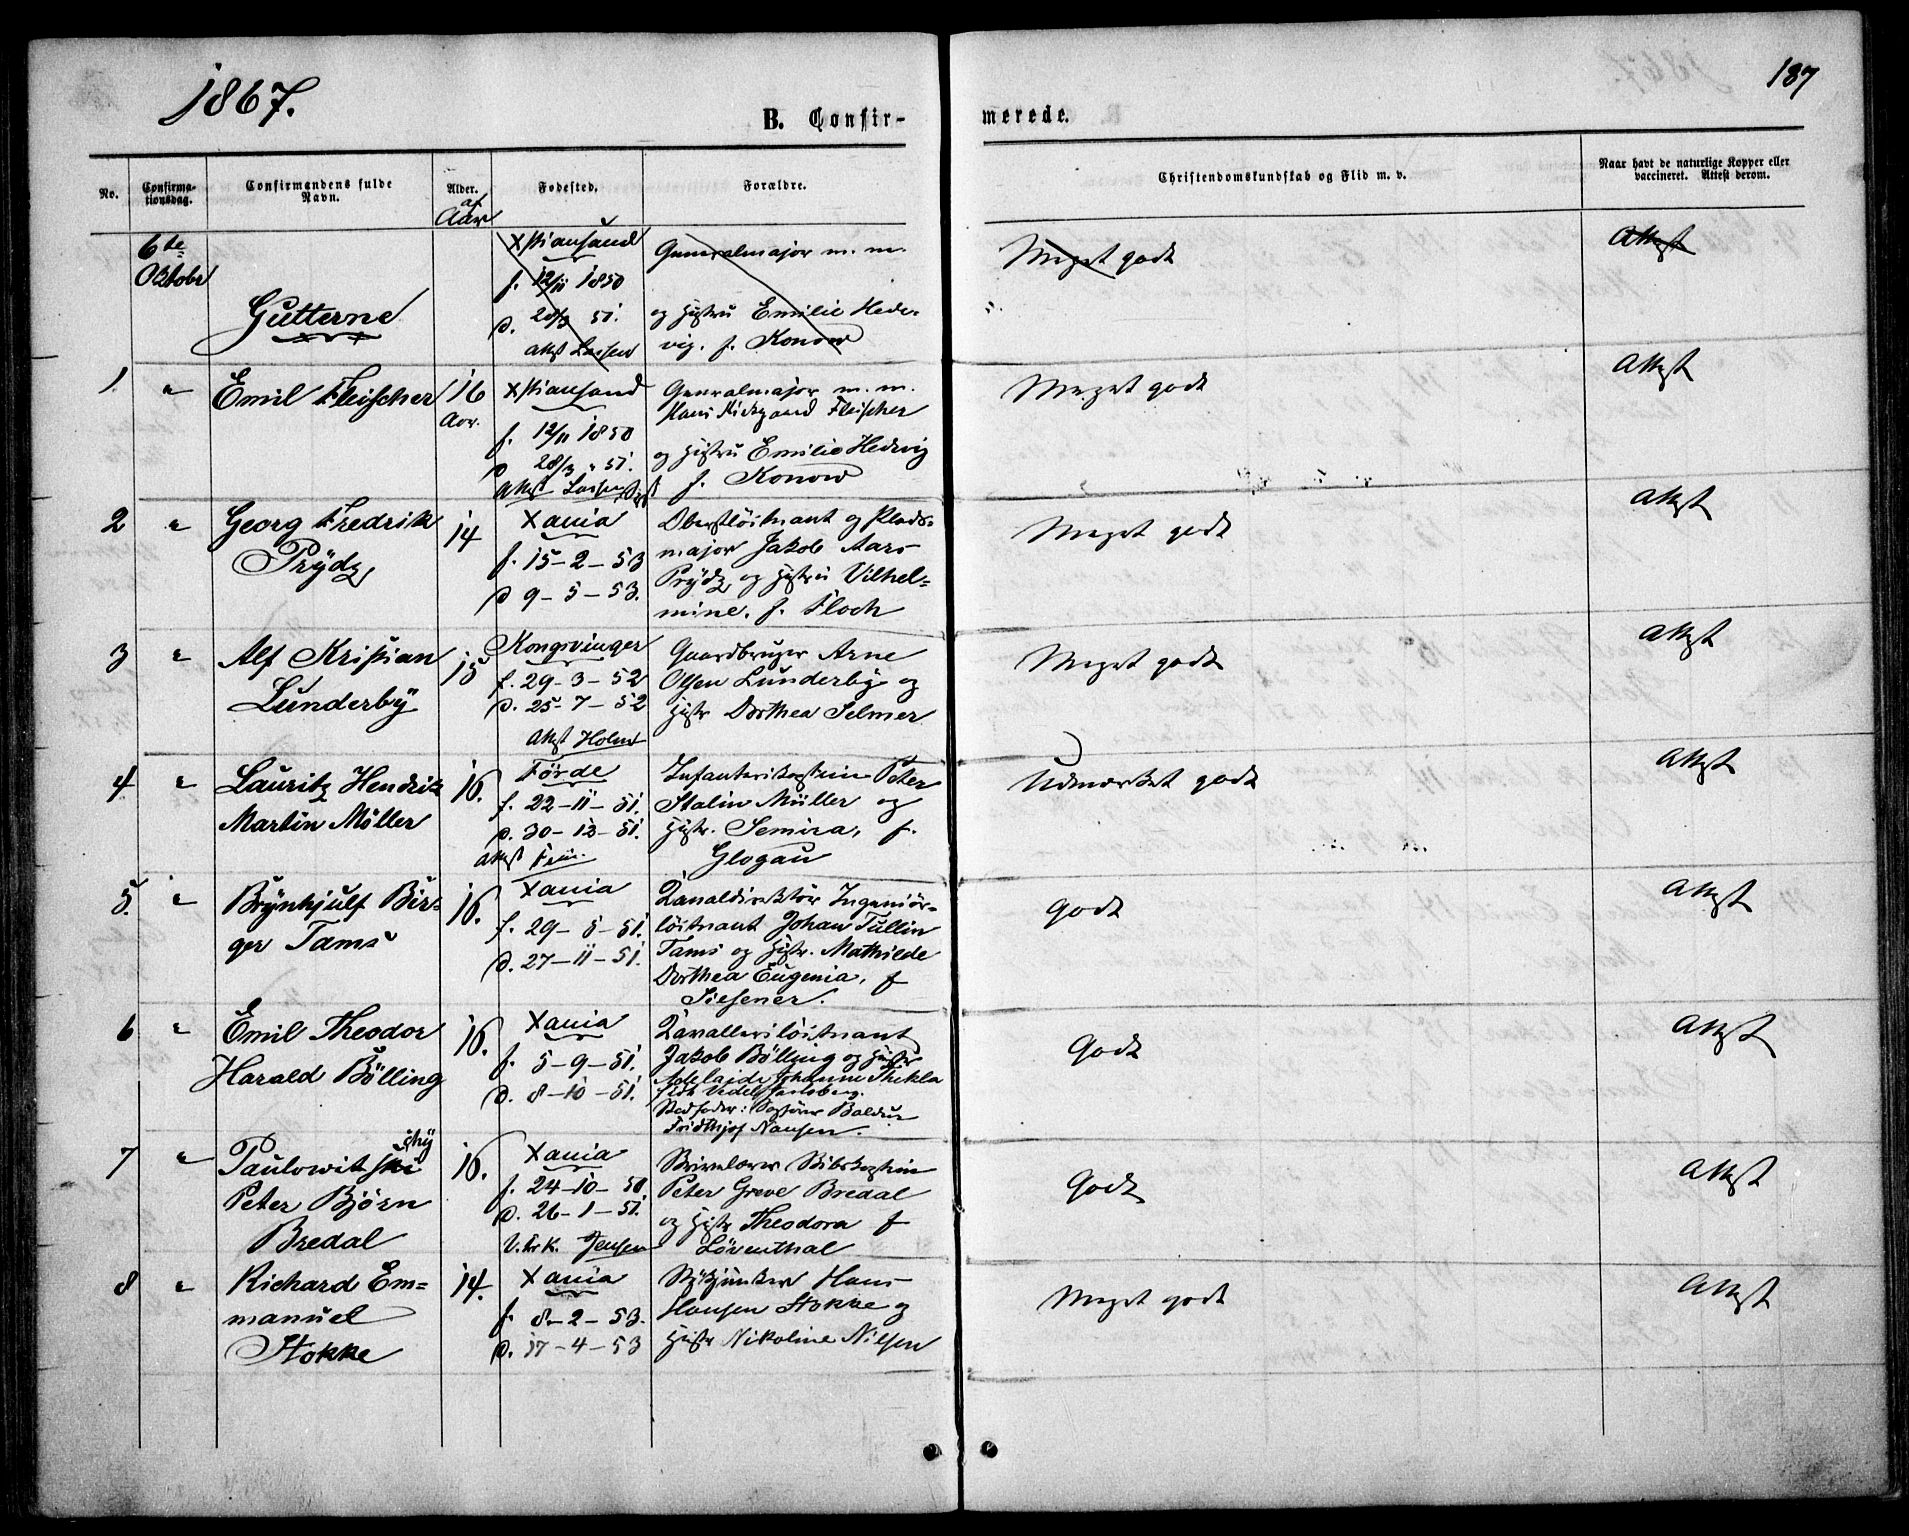 1867.
187
B. Confir-
merede.
No.
Confirma-
tionsdag.
Confirmandens fulde
Navn.
Alder.
Aar
Fødested.
Forældre.
Christendomskundskab og Flid m. v.
Naar havt de naturlige Kopper eller
vaccineret. Attest derom.
6te
Oktobr
Gutterne
Xstiansand
f. 12/11 1850
d. 28/3 51.
Attst Lassen
Generalmajor m. m.
og Hustru Emilie Hed-
vig. f. Konow
Meget godt
Attst
1
"
Emil Fleischer
16
Aar.
Xstiansand
f. 12/11 1850
d. 28/3 - 51.
Attst Lassen
Generalmajor m. m.
Hans Fleischer
og Hustru Emilie Hedvig
f. Konow
Meget godt
Attst
2
"
Georg Fredrik
Prÿdz
14
Xania
f. 15-2-53
d 9-5-53.
Oberstløitnant og Plads-
major Jakob Aars
Prÿdz og Hustru Vilhel-
mine. f. Floch
Meget godt
Attst
3
"
Alf Kristian
Lunderbÿ
15
Kongsvinger
f. 29-3-52
d. 25-7-52
Attst Holm
Gaardbruger Arne
Olsen Lunderby og
Hustr Dorthea Selmer
Meget godt
Attst
4
"
Lauritz Hendrik
Martin Möller
16.
Förde
f. 22-11-51.
d. 30-12-51.
Attst
Infanterikaptein Peter
Stalin Müller og
Hustr. Semira, f.
Glogau
Udmærket godt
Attst
5.
"
Brÿnhjulf Bir-
ger Tams
16.
Xania
f. 29-5-51.
d. 27-11-51.
Kanaldirektör Ingeniör-
löitnant Johan Tullin
Tams og Hustr. Mathilde
Dorthea Eugenia, f
Siesener.
Godt
Attst
6
"
Emil Theodor
Harald Bölling
16.
Xania
f. 5-9-51.
d. 8-10-51.
Kavallerilöitnant
Jakob Bölling og Hustr
Adelaide Johanne Thekla
Vedel Jarlsberg.
Stedfader: Baldur
Fridthjof Nansen.
Godt
Attst
7
"
Paulowitski
sky
Peter Björn
Bredal
16.
Xania
f. 24-10-50.
d. 26-1-51.
V. Frk. Jensen
Peter Greve Bredal
og Hustr Theodora f
Löventhal
Godt
Attst
8
"
Richard Em-
manuel
Stokke
14.
Xania
f. 8-2-53.
d. 17-4-53
Hans
Hansen Stokke og
Hustr Nikoline Nilsen
Meget godt
Attst